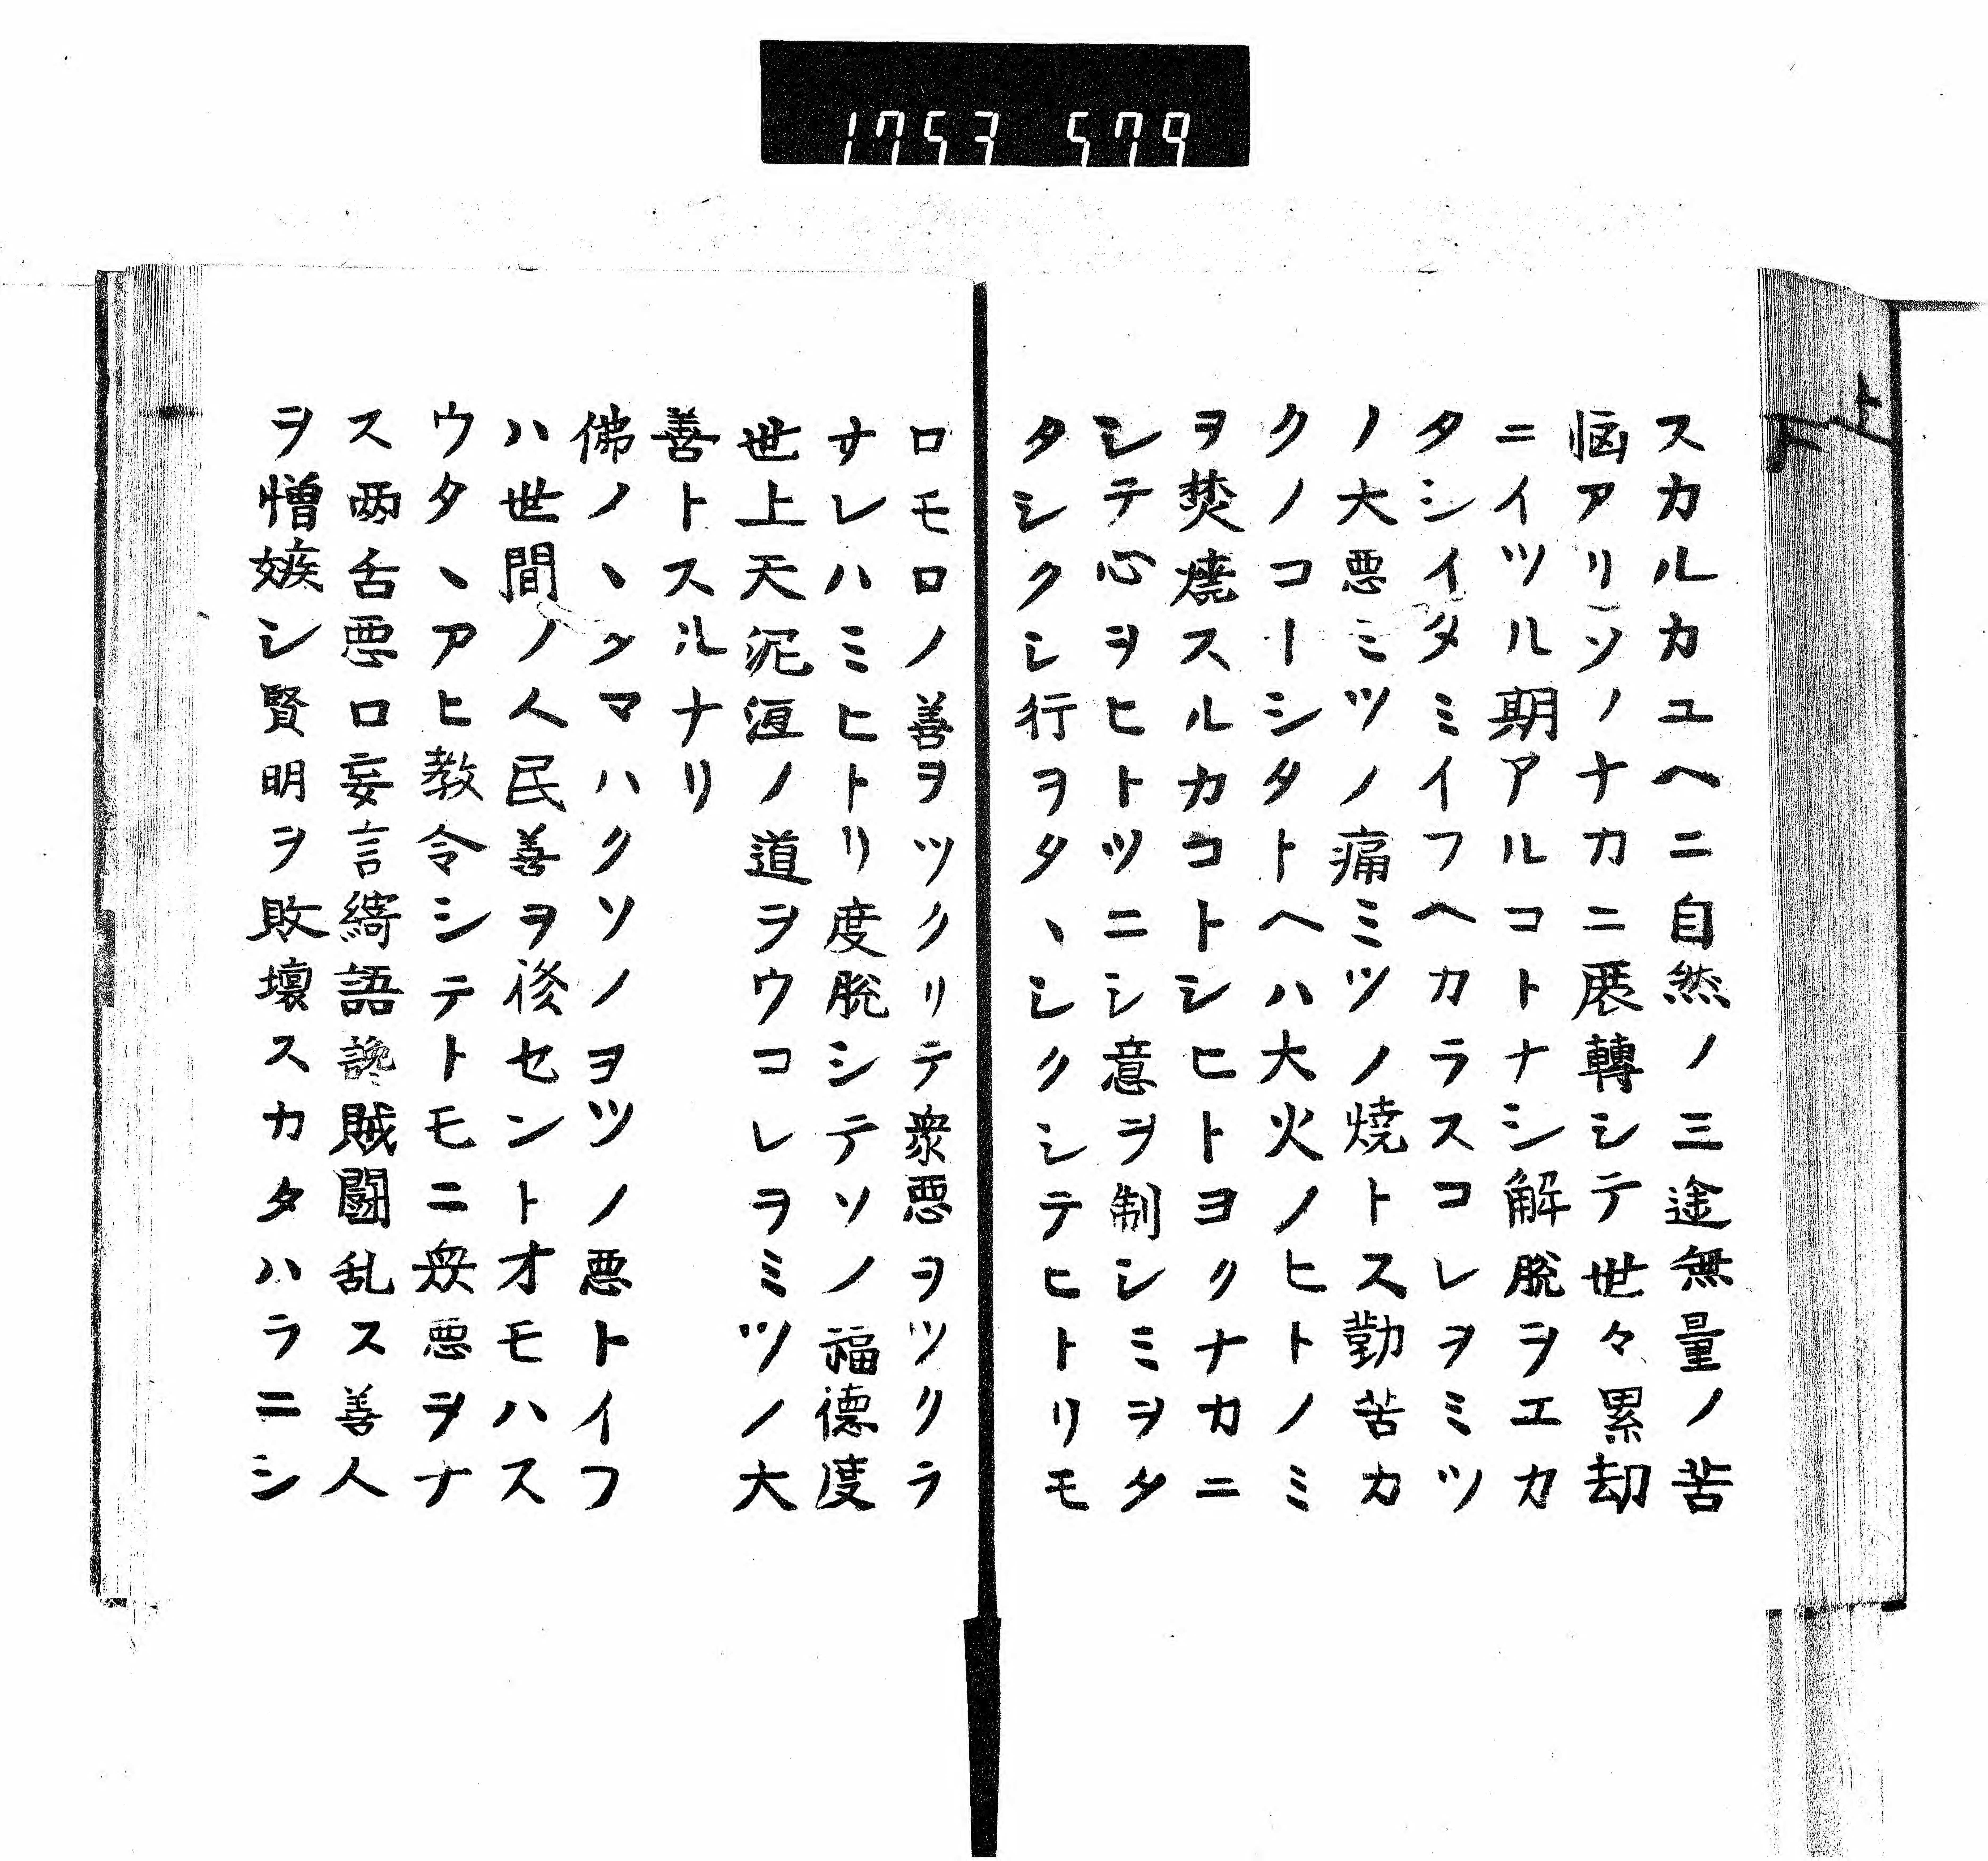 1753 579
スカルカユヘニ自然ノ三途無量ノ苦
悩アリソノナカニ展轉シテ世々累劫
ニイツル期アルコトナシ解脱ヲエカ
タシイタミイフヘカラスコレヲミツ
ノ大悪ミツノ痛ミツノ焼トス勤苦カ
クノコーシタトヘハ大火ノヒトノミ
ヲ焚焼スルカコトシヒトヨクナカニ
シテ心ヲヒトツニシ意ヲ制シミヲタ
タシクシ行ヲタヽシクシテヒトリモ
ロモロノ善ヲツクリテ衆悪ヲツクラ
サレハミヒトリ度脱シテソノ福德度
世上天泥洹ノ道ヲウコレヲミツノ大
善トスルナリ
佛ノヽタマハクソノヨツノ悪トイフ
ハ世間ノ人民善ヲ後セントオモハス
ウタヽアヒ教令シテトモニ衆悪ヲナ
ス两舌悪口妄言綺語讒賊闘乱ス善人
ヲ憎嫉シ賢明ヲ敗壞スカタハラニシ